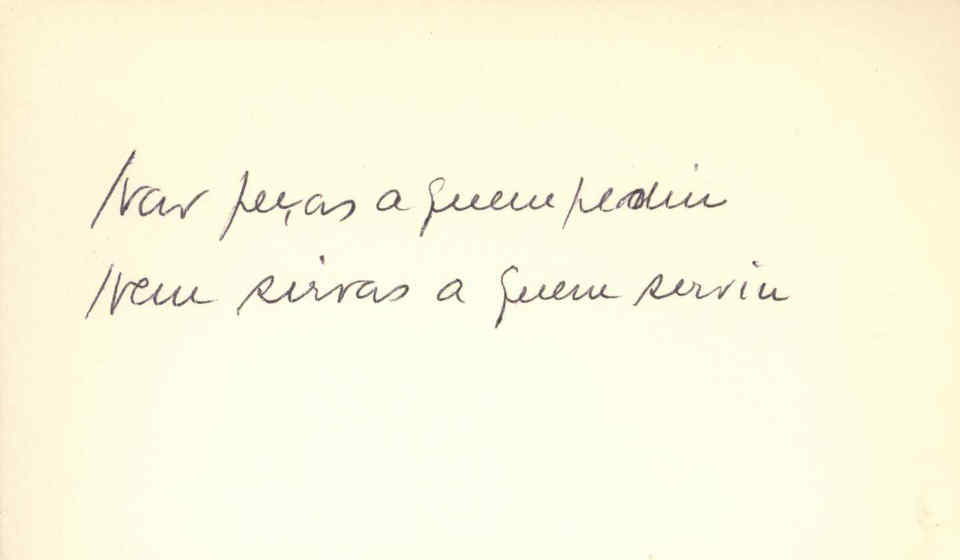 Nao peças a quem pediu
Nem sirvas a quem serviu